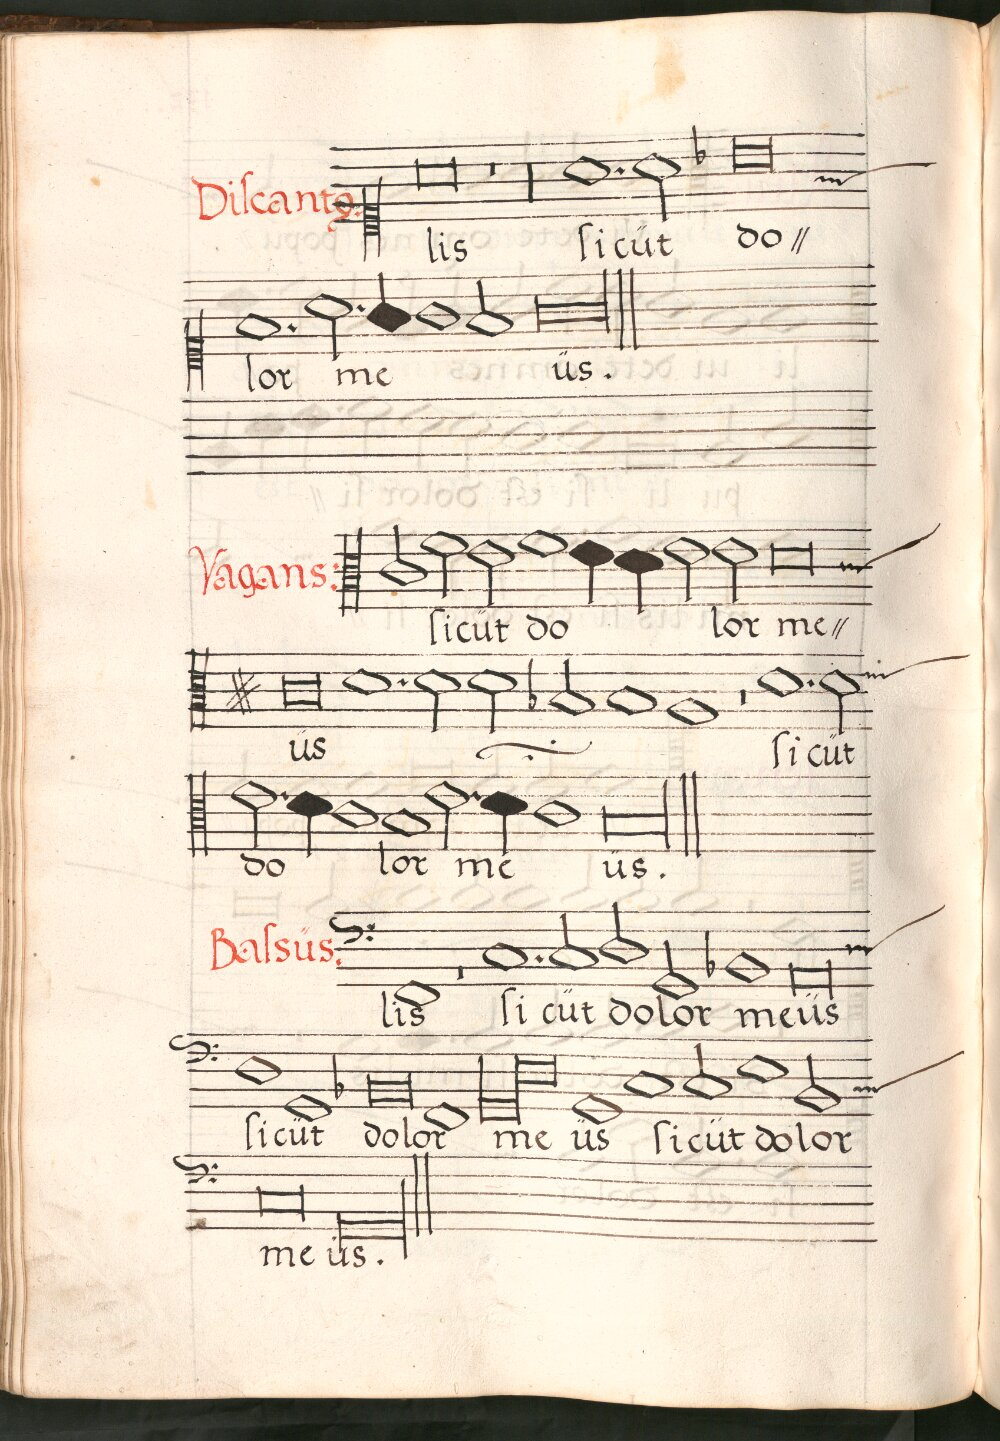 Diſcantꝰ:
lis ſicŭt do//
lor me ŭs.
Vagans:
ſicŭt do lor me//
ŭs ſicŭt
do lor me ŭs.
Baſsŭs:
lis ſi cŭt dolor meŭs
ſicŭt dolor me ŭs ſicŭt dolor
me ŭs.